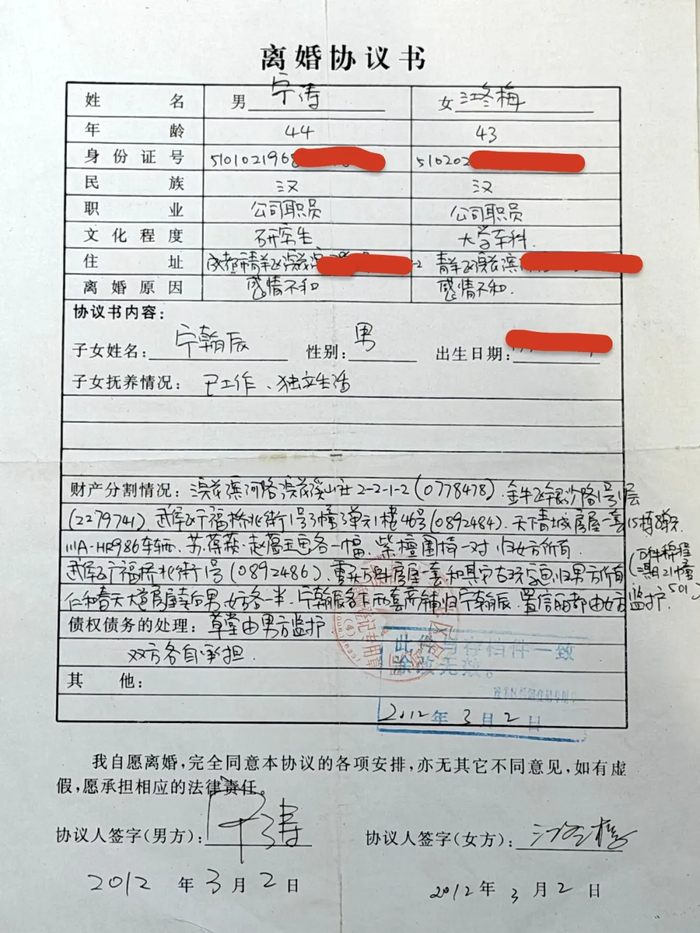 离婚协议书
姓名 男 宁涛 女 江冬梅
年龄 44 43
身份证号 510102196 510202
民族 汉 汉
职业 公司职员 公司职员
文化程度 研究生 大学本科.
住址 成都市青羊区浣花滨 -2 青羊区浣花滨
离婚原因 感情不和 感情不和.
协议书内容：
子女姓名：宁翰辰 性别：男 出生日期：
子女抚养情况：已工作、独立生活
财产分割情况：浣花滨河路浣花溪 2-2-1-2(0778478). 金牛区银沙路1号 层
(2279741) 武侯区广福桥北街1号3幢3单元1楼46号(0892484). 天下青城房屋一套
HR986车辆. 苏葆桢、赵蕴玉画各一幅, 紫檀圈椅一对 归女方所有.
武侯区广福桥北街1号(0892486). 房屋一套和其它 字画归男方所有
仁和春天大道房屋 男女方各一半. 宁翰辰 两套商铺归宁翰辰. 置信丽都由女方监护
债权债务的处理：草堂由男方监护
双方各自承担.
其他：
此件与存档件一致
涂改无效。
2012年3月2日
我自愿离婚，完全同意本协议的各项安排，亦无其它不同意见，如有虚
假，愿承担相应的法律责任。
协议人签字(男方)：宁涛 协议人签字(女方)：江冬梅
2012年3月2日 2012年3月2日